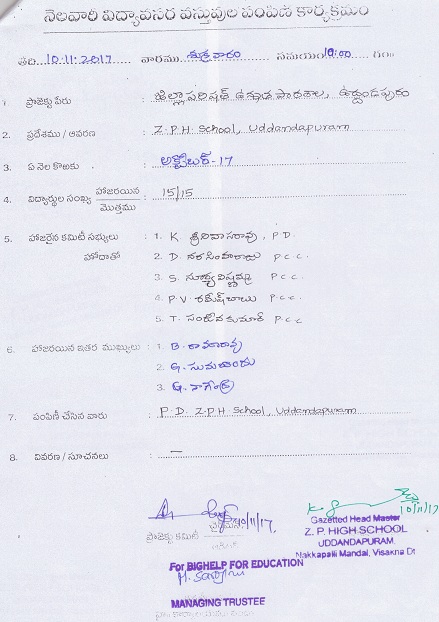 నెలవారీ విద్యావసర వస్తువుల పంపిణి కార్యక్రమం
తేది. 10.11.2017 వారము శుక్రవారం సమయం 10:00 గం॥
1. ప్రాజెక్టు పేరు : జిల్లా పరిషత్ ఉన్నత పాఠశాల, ఉద్దండపురం
2. ప్రదేశము / ఆవరణ : Z.P.H School, Uddandapuram
3. ఏ నెల కొఱకు : అక్టోబర్-17
4. విద్యార్థుల సంఖ్య హాజరయిన / మొత్తము : 15/15
5. హాజరైన కమిటీ సభ్యులు : 1. K. శ్రీనివాసరావు, P.D.
హోదాతో 2. D. నరసింహరాజు P.C.C.
3. S. సూర్య P.C.C.
4. P.V. రమేష్ బాబు P.C.C.
5. T. సంతోష కుమార్ P.C.C
6. హాజరయిన ఇతర ముఖ్యులు : 1. B. రామారావు
2. G.
3. G. నాగేంద్ర
7. పంపిణీ చేసిన వారు : P.D. Z.P.H School, Uddandapuram
8. వివరణ / సూచనలు : —
10/11/17
ప్రాజెక్టు కమిటీ
10/11/17
Gazetted Head Master
Z. P. HIGH SCHOOL
UDDANDAPURAM,
Nakkapalli Mandal, Visakha Dt
For BIGHELP FOR EDUCATION
MANAGING TRUSTEE